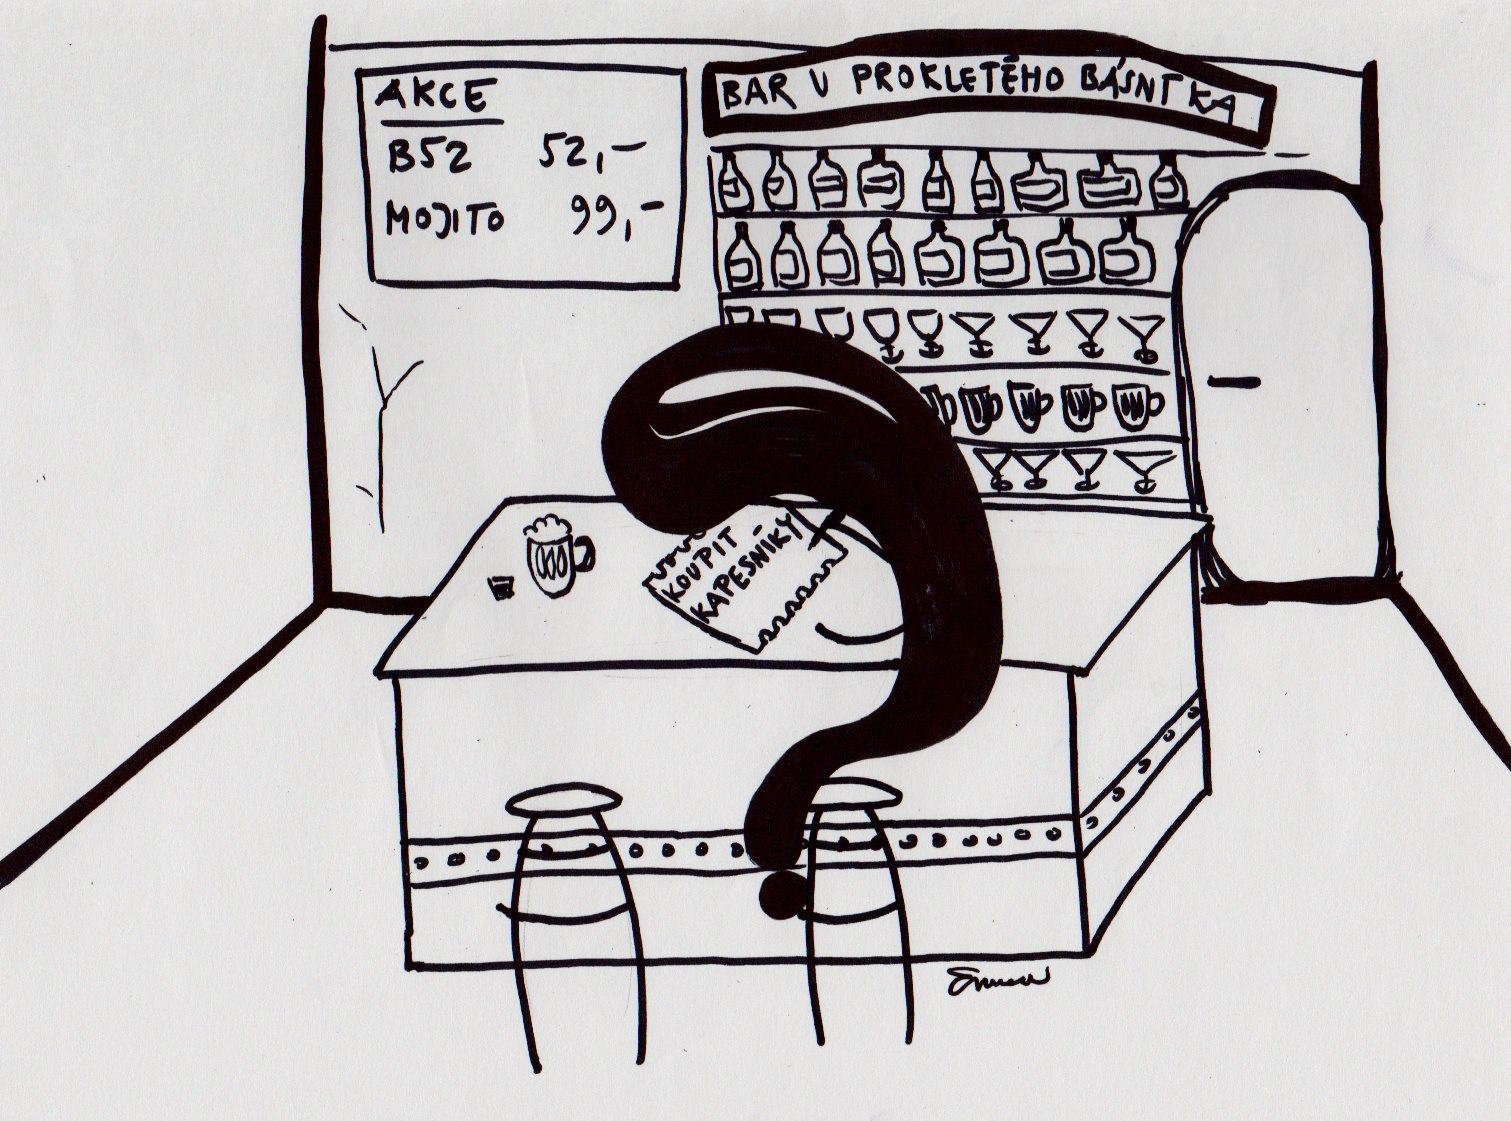 AKCE
B52 52,-
MOJITO 99,-
BAR U PROKLETÉHO BÁSNÍKA
KOUPIT
KAPESNÍKY